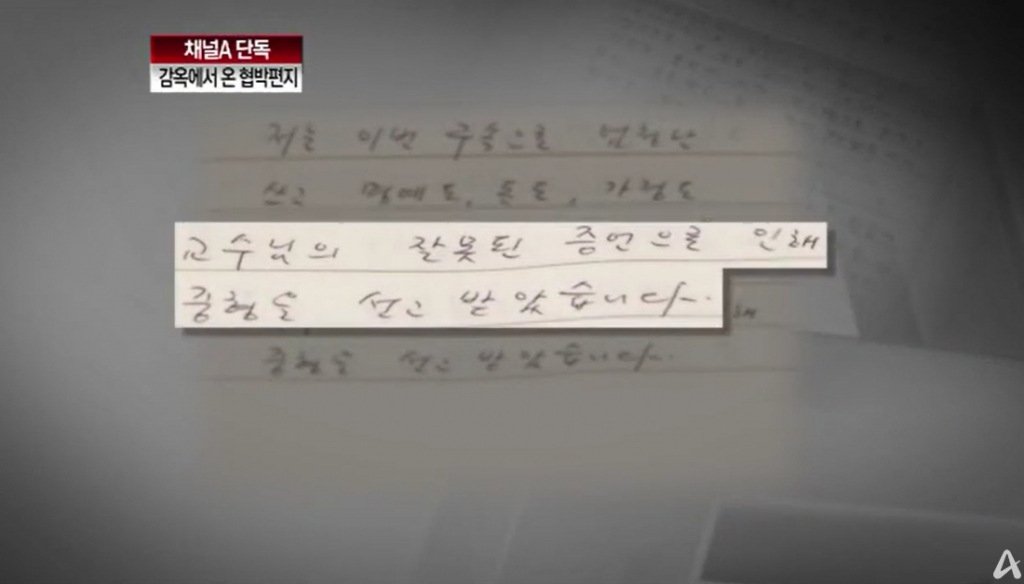 채널A 단독
감옥에서 온 협박편지
저는 이번 구속으로
명예도, 돈도, 가정도
교수님의 잘못된 증언으로 인해
중형을 선고 받았습니다.
해
중형을 선고 받았습니다.